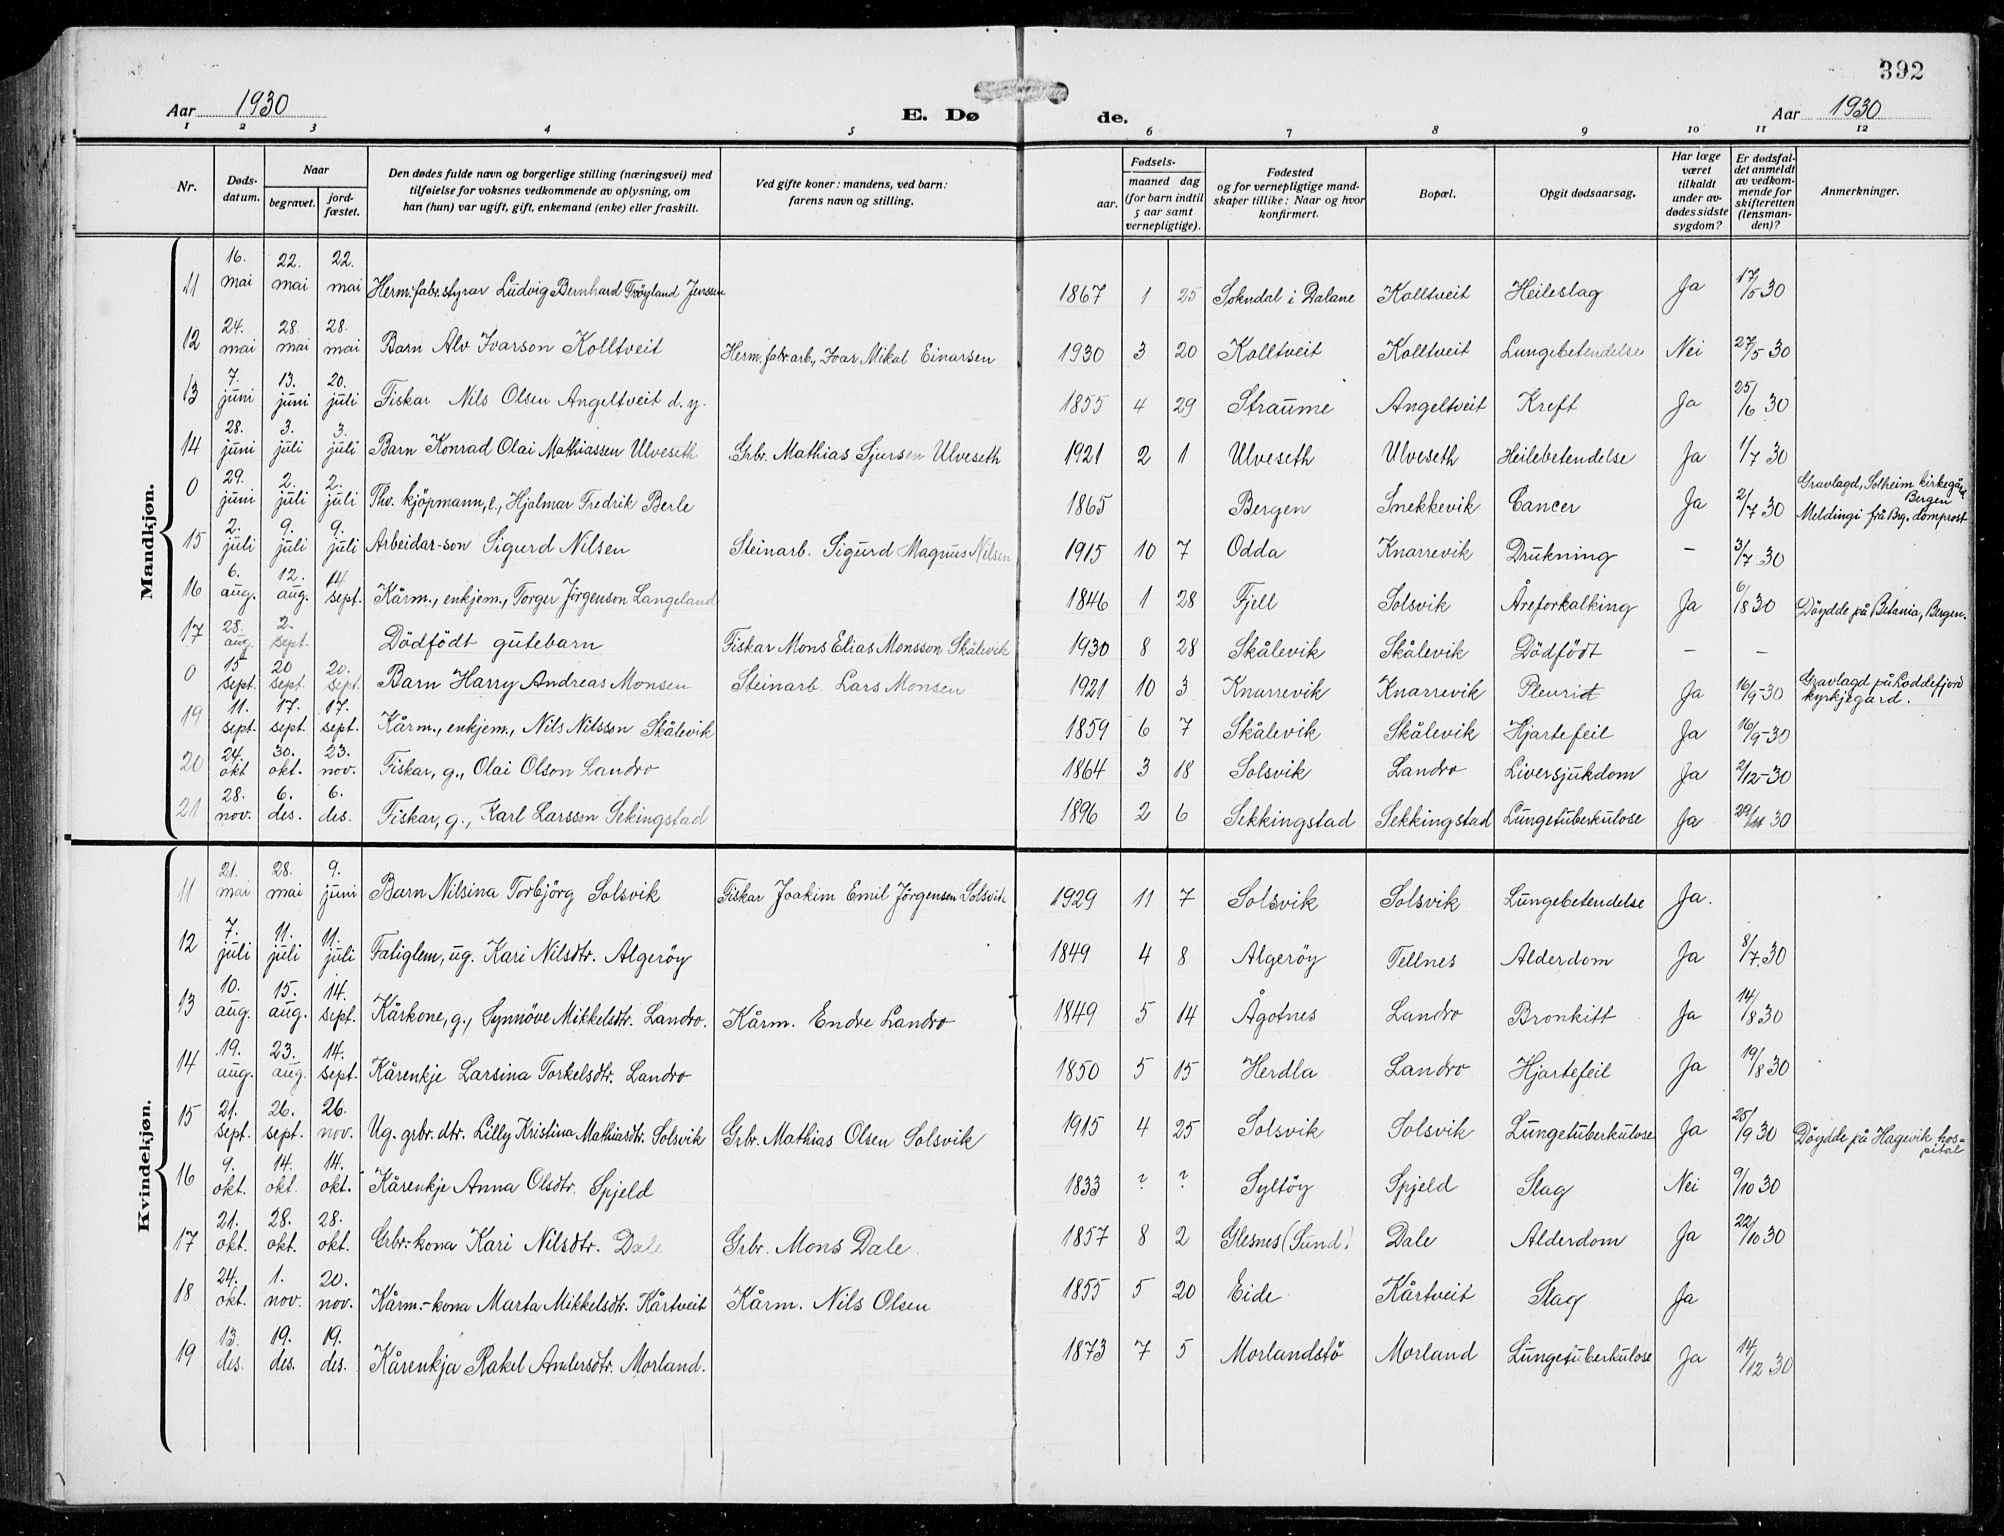 392
Aar 1930
E. Dø de.
Aar 1930
1 2 3 4 5 6 7 8 9 10 11 12
Nr.
Døds-datum.
Naar
begravet.
jord-fæstet.
Den dødes fulde navn og borgerlige stilling (næringsvei) med
tilføielse for voksnes vedkommende av oplysning, om
han (hun) var ugift, gift, enkemand (enke) eller fraskilt.
Ved gifte koner: mandens, ved barn:
farens navn og stilling.
Fødsels-
aar. maaned dag
(for barn indtil
5 aar samt
vernepligtige).
Fødested
og for vernepligtige mand-
skaper tillike: Naar og hvor
konfirmert.
Bopæl.
Opgit dødsaarsag.
Har læge
været
tilkaldt
under av-
dødes sidste
sygdom?
Er dødsfal-
det anmeldt
av vedkom-
mende for
skifteretten
(lensman-
den)?
Anmerkninger.
Mandkjøn.
11 16. mai 22. mai 22. mai Herm.fabr.styrar Ludvig Bernhard Tröyland Jenssen 1867 1 25 Sokndal i Dalane Kolltveit Heileslag Ja 17/5 30
12 24. mai 28. mai 28. mai Barn Alv Ivarson Kolltveit Herm.fabr.arb., Ivar Mikal Einarsen 1930 3 20 Kolltveit Kolltveit Lungebetendelse Nei 27/5 30
13 7. juni 13. juni 20. juli Fiskar Nils Olsen Angeltveit d.y. 1855 4 29 Straume Angeltveit Kreft Ja 25/6 30
14 28. juni 3. juli 3. juli Barn Konrad Olai Mathiassen Ulveseth Grbr. Mathias Sjursen Ulveseth 1921 2 1 Ulveseth Ulveseth Heilebetendelse Ja 1/7 30
0 29. juni 2. juli 2. juli Thv. kjöpmann, e, Hjalmar Fredrik Berle 1865 Bergen Snekkevik Cancer Ja 2/7 30 Gravlagd, Solheim kirkegård Bergen Meldingi frå Brg. domprost
15 2. juli 9. juli 9. juli Arbeidar-son Sigurd Nilsen Steinarb. Sigurd Magnus Nilsen 1915 10 7 Odda Knarrevik Drukning – 3/7 30
16 6. aug. 12. aug. 14 sept. Kårm., enkjem., Torger Jörgenson Langeland 1846 1 28 Fjell Solsvik Åreforkalking Ja 6/8 30 Döydde på Betania, Bergen.
17 28. aug. 2. sept. Dödfödt gutebarn Fiskar Mons Elias Monsson Skålevik 1930 8 28 Skålevik Skålevik Dödfödt – –
0 15 sept. 20 sept. 20. sept. Barn Harry Andreas Monsen Steinarb. Lars Monsen 1921 10 3 Knarrevik Knarrevik Pleurit Ja 16/9-30 Gravlagd på Loddefjord kyrkjegard.
19 11. sept. 17. sept. 17. sept. Kårm., enkjem., Nils Nilsson Skålevik 1859 6 7 Skålevik Skålevik Hjartefeil Ja 16/9-30
20 24. okt 30. okt. 23. nov. Fiskar, g., Olai Olson Landro 1864 3 18 Solsvik Landro Liversjukdom Ja 2/12-30
21 28. nov. 6. des. 6. des. Fiskar, g., Karl Larsson Sekingstad 1896 2 6 Sekkingstad Sekkingstad Lungetuberkulose Ja 29/11 30
Kvindekjøn.
11 21. mai 28. mai 9. juni Barn Nilsina Torbjörg Solsvik Fiskar Joakim Emil Jörgensen Solsvik 1929 11 7 Solsvik Solsvik Lungebetendelse Ja.
12 7. juli 11. juli 11. juli Fatiglem, ug. Kari Nilsdtr. Algeröy 1849 4 8 Algeröy Tellnes Alderdom Ja 8/7.30
13 10. aug. 15. aug. 14. sept. Kårkone, g., Synnöve Mikkelsdtr. Landro. Kårm. Endre Landro 1849 5 14 Ågotnes Landro Bronkitt Ja 14/8 30
14 19. aug. 23. aug. 14. sept. Kårenkje Larsina Torkelsdtr. Landro 1850 5 15 Herdla Landro Hjartefeil Ja 19/8 30
15 21. sept. 26. sept. 26. nov. Ug. grbr. dtr. Lilly Kristina Mathiasdtr. Solsvik Grbr. Mathias Olsen Solsvik 1915 4 25 Solsvik Solsvik Lungetuberkulose Ja 25/9 30 Döydde på Hagevik hos-pital
16 9. okt. 14. okt. 14. okt. Kårenkje Anna Olsdtr. Spjeld 1833 ? ? Syltöy Spjeld Slag Nei 9/10 30
17 21. okt. 28. okt. 28. okt. Grbr.-kona Kari Nilsdtr. Dale Grbr. Mons Dale. 1857 8 2 Glesnes (Sund) Dale Alderdom Ja 22/10 30
18 24. okt. 1. nov. 20. nov. Kårm.-kona Marta Mikkelsdtr. Kårtveit Kårm. Nils Olsen 1855 5 20 Eide Kårtveit Slag Ja
19 13. des. 19. des. 19. des. Kårenkja Rakel Andersdtr. Morland. 1873 7 5 Morlandstö Morland Lungetuberkulose Ja 14/12 30